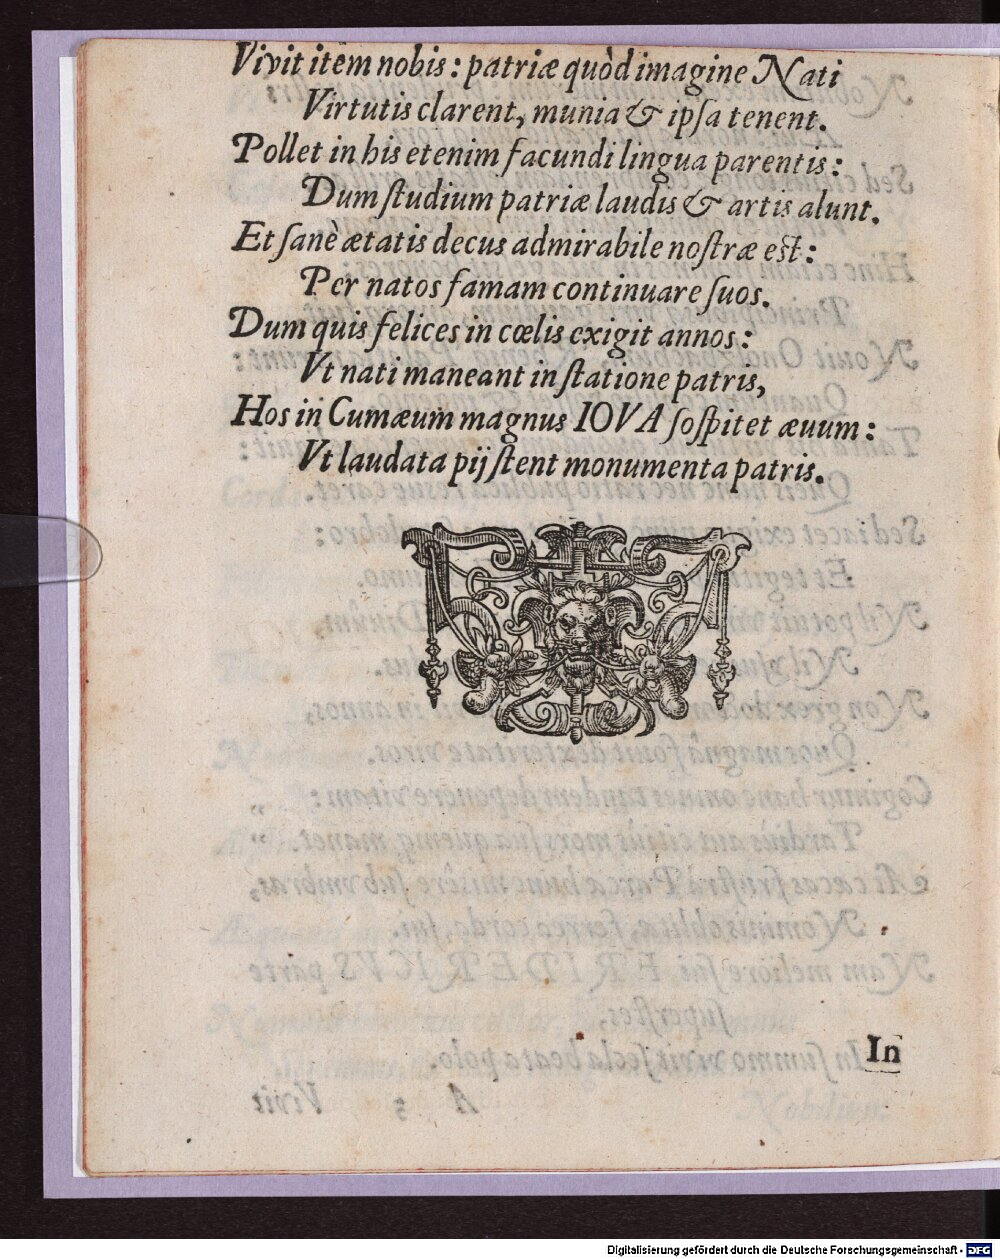 Vivit item nobis: patriæ quòd imagine Nati
Virtutis clarent, munia & ipſa tenent.
Pollet in his etenim facundi lingua parentis:
Dum ſtudium patriæ laudis & artis alunt.
Et ſanè ætatis decus admirabile noſtræ eſt:
Per natos famam continuare ſuos.
Dum quis felices in cœlis exigit annos:
Vt nati maneant in ſtatione patris,
Hos in Cumæum magnus IOVA ſoſpitet æuum:
Vt laudata pij ſtent monumenta patris.
In
Digitalisierung gefördert durch die Deutsche Forschungsgemeinschaft - DFG